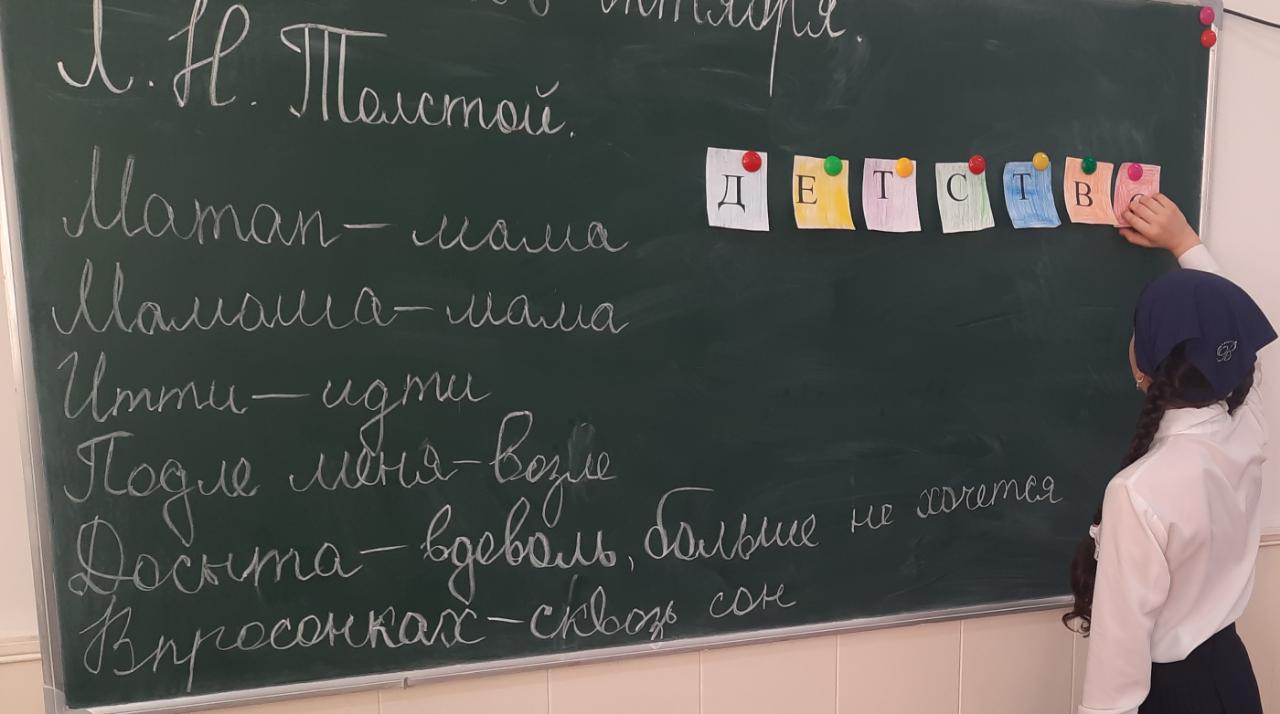 октября.
Л. Н. Толстой.
ДЕТСТВ
Maman – мама
Мамаша – мама
Итти – идти
Подле меня – возле
Досыта – вдоволь, больше не хочется
Впросонках – сквозь сон